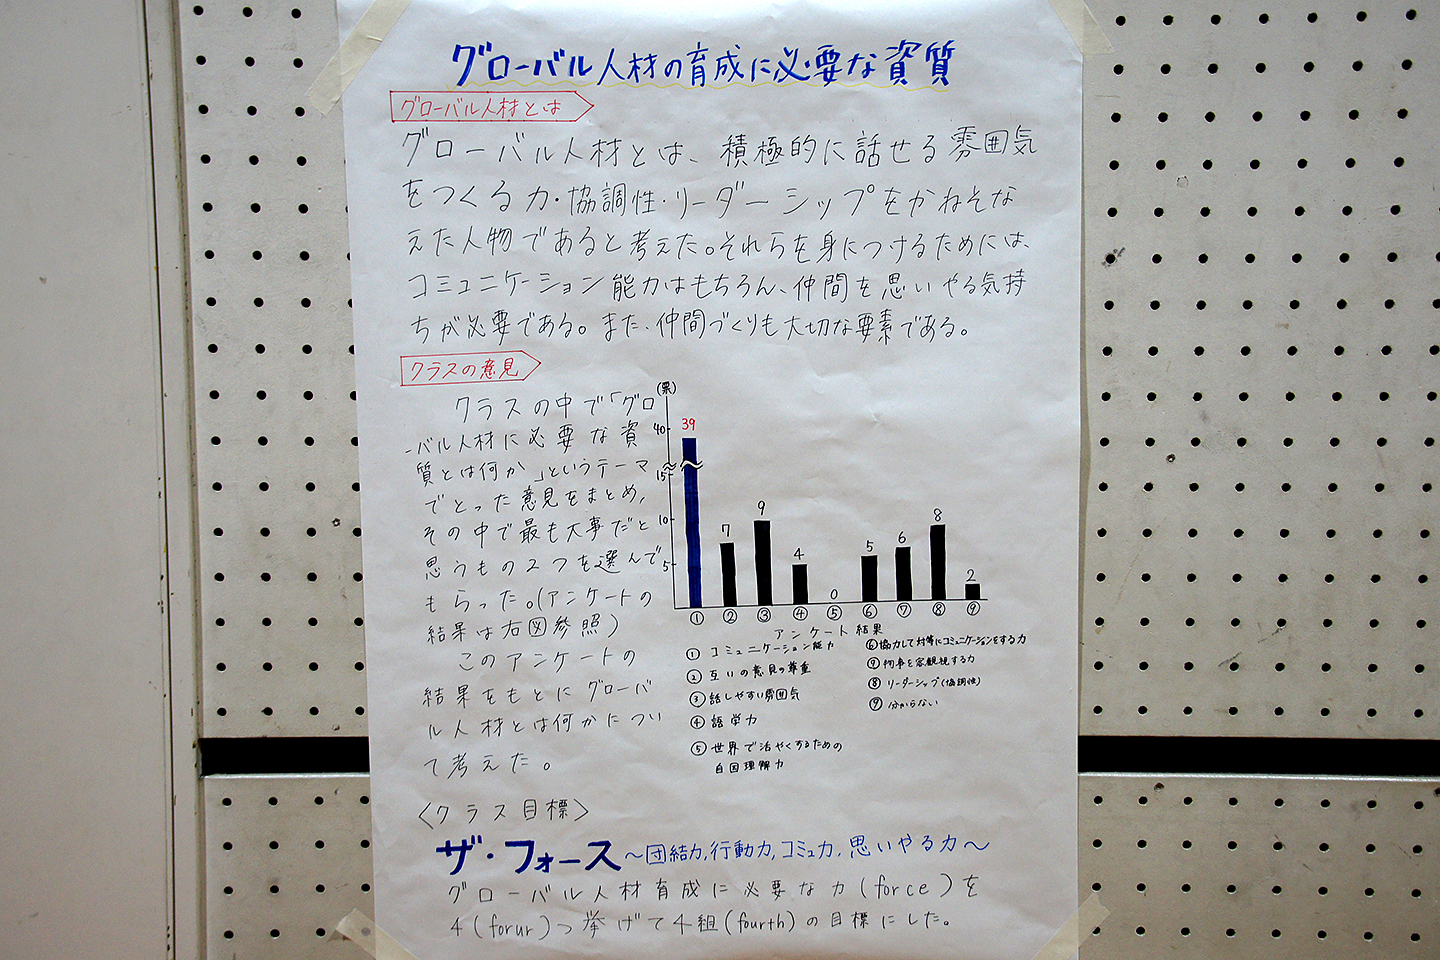 グローバル人材の育成に必要な資質
グローバル人材とは
グローバル人材とは、積極的に話せる雰囲気
をつくる力・協調性・リーダーシップをかねそな
えた人物であると考えた。それらを身につけるためには、
コミュニケーション能力はもちろん、仲間を思いやる気持
ちが必要である。また、仲間づくりも大切な要素である。
クラスの意見
クラスの中で「グロ
ーバル人材に必要な資
質とは何か」というテーマ
でとった意見をまとめ,
その中で最も大事だと
思うもの2つを選んで
もらった。(アンケートの
結果は右図参照)
このアンケートの
結果をもとにグローバ
ル人材とは何かについ
て考えた。
(票)
40
15
10
5
39
7
9
4
0
5
6
8
2
① ② ③ ④ ⑤ ⑥ ⑦ ⑧ ⑨
アンケート結果
① コミュニケーション能力
② 互いの意見の尊重
③ 話しやすい雰囲気
④ 語学力
⑤ 世界で活やくするための
自国理解力
⑥ 協力して対等にコミュニケーションをする力
⑦ 物事を客観視する力
⑧ リーダーシップ(協調性)
⑨ 分からない
〈クラス目標〉
ザ・フォース ～団結力,行動力,コミュ力,思いやる力～
グローバル人材育成に必要な力(force)を
4(forur)つ挙げて4組(fourth)の目標にした。